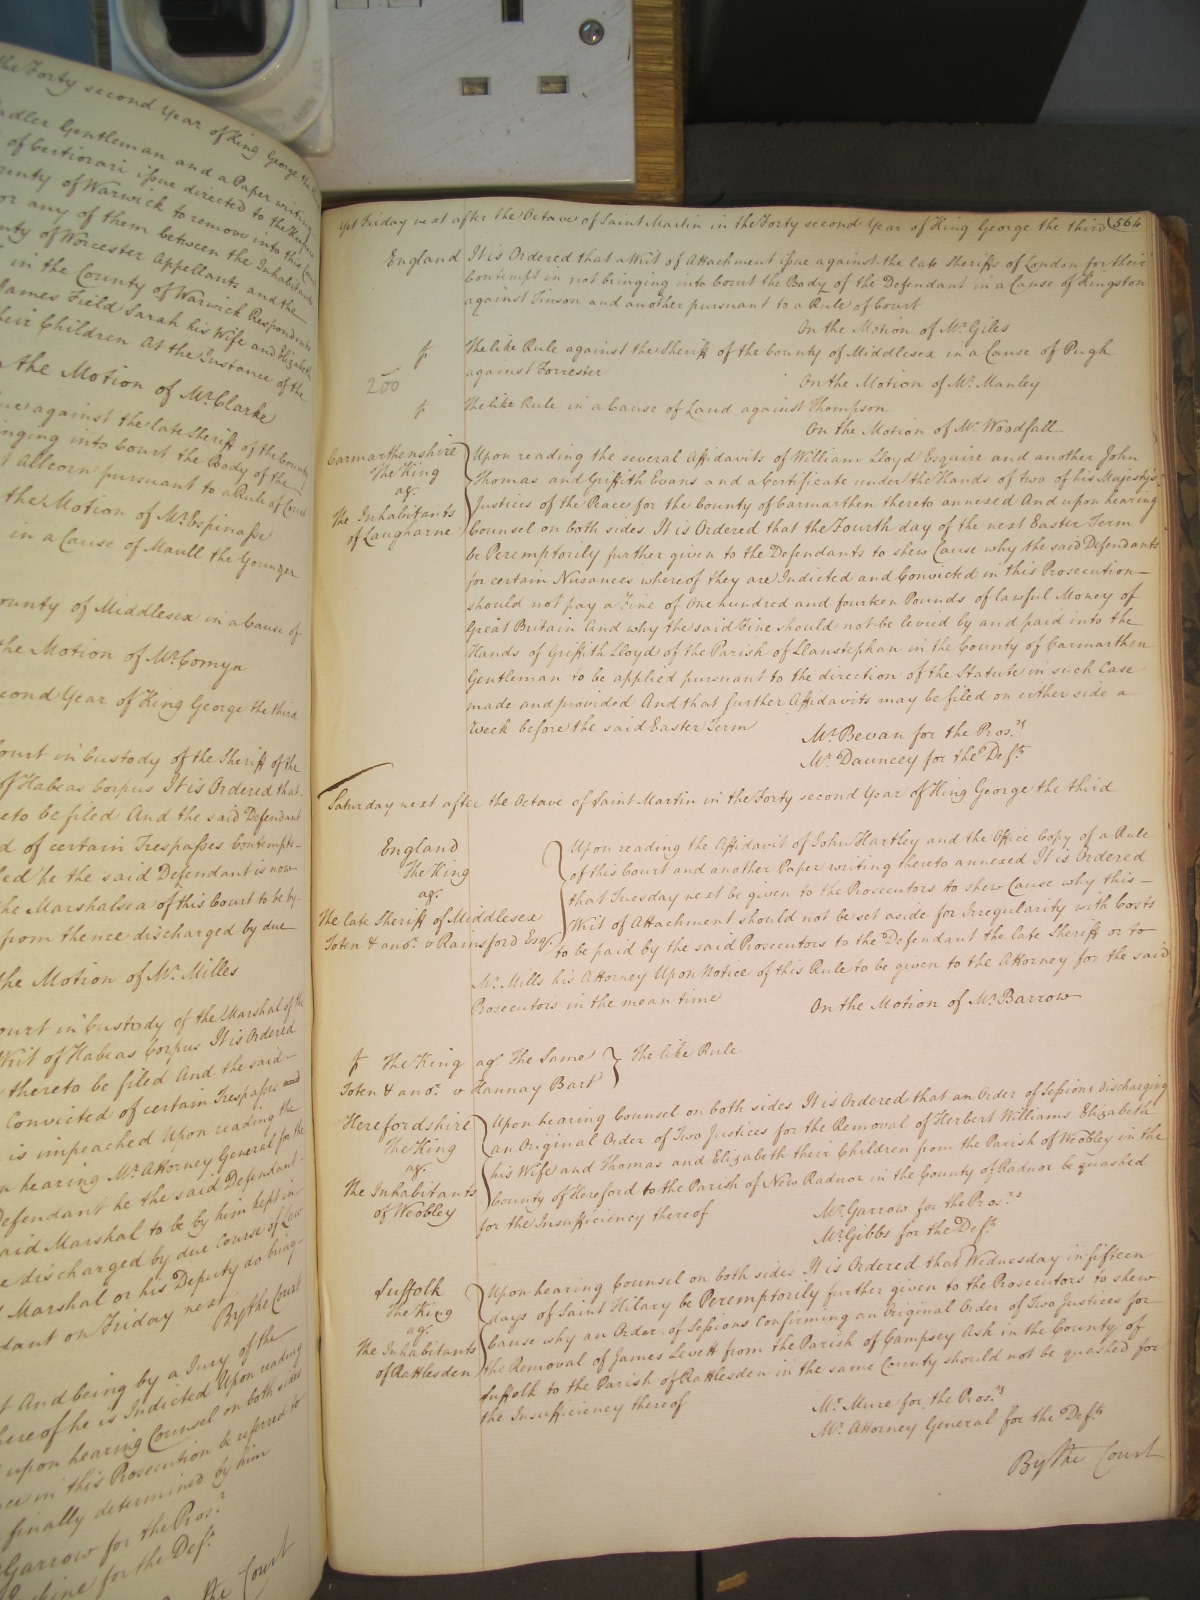 the Forty second Year of King George the
adler Gentleman and a Paper writing
of Certiorari issue directed to the
ounty of Warwick to remove into this Court
or any of them between the Inhabitants
nty of Worcester Appellants and the
in the County of Warwick Respondents
James Field Sarah his Wife and Elizabeth
heir Children At the Instance of the
the Motion of Mr. Clarke
ue against the late Sheriff of the County
inging into Court the Body of the
Allcorn pursuant to a Rule of Court
the Motion of Mr. Espinasse
in a Cause of Maull the Younger
ounty of Middlesex in a Cause of
the Motion of Mr. Comyn
econd Year of King George the third
ourt in Custody of the Sheriff of the
of Habeas Corpus It is Ordered that
eto be filed And the said Defendant
d of certain Trespasses Contempts
led he the said Defendant is now
the Marshalsea of this Court to be by
from thence discharged by due
the Motion of Mr. Milles
ourt in Custody of the Marshal of the
Writ of Habeas Corpus It is Ordered
thereto be filed And the said
Convicted of certain Trespasses
is impeached Upon reading the
n hearing Mr. Attorney General for the
Defendant he the said Defendant
aid Marshal to be by him kept in
e discharged by due Course of Law
Marshal or his Deputy do bring
dant on Friday next
By the Court
t And being by a Jury of the
hereof he is Indicted Upon reading
upon hearing Counsel on both sides
nce in this Prosecution be referred to
finally determined by him
Garrow for the Pros.r
for the Def.t
the Court
Yet Friday next after the Octave of Saint Martin in the Forty second Year of King George the third 564
England It is Ordered that a Writ of Attachment issue against the late Sheriffs of London for their
Contempt in not bringing into Court the Body of the Defendant in a Cause of Kingston
against Tinson and another pursuant to a Rule of Court
On the Motion of Mr. Giles
f. The like Rule against the Sheriff of the County of Middlesex in a Cause of Pugh
against Forrester
On the Motion of Mr. Manley
200
f. The like Rule in a Cause of Laud against Thompson
On the Motion of Mr. Woodfall
Carmarthenshire
The King
agt.
The Inhabitants
of Laugharne
Upon reading the several Affidavits of William Lloyd Esquire and another John
Thomas and Griffith Evans and a Certificate under the Hands of two of his Majesty's
Justices of the Peace for the County of Carmarthen thereto annexed And upon hearing
Counsel on both sides It is Ordered that the Fourth day of the next Easter Term
be Peremptorily further given to the Defendants to shew Cause why the said Defendants
for certain Nusances whereof they are Indicted and Convicted in this Prosecution
should not pay a Fine of One hundred and fourteen Pounds of lawful Money of
Great Britain And why the said Fine should not be levied by and paid into the
Hands of Griffith Lloyd of the Parish of Llanstephan in the County of Carmarthen
Gentleman to be applied pursuant to the direction of the Statute in such Case
made and provided And that further Affidavits may be filed on either side a
Week before the said Easter Term
Mr. Bevan for the Pros.rs
Mr. Dauncey for the Def.ts
Saturday next after the Octave of Saint Martin in the Forty second Year of King George the third
England
The King
agt.
The late Sheriff of Middlesex
Toten & anor. v Rainsford Esqr.
Upon reading the Affidavit of John Hartley and the Office Copy of a Rule
of this Court and another Paper writing thereto annexed It is Ordered
that Tuesday next be given to the Prosecutors to shew Cause why this
Writ of Attachment should not be set aside for Irregularity with Costs
to be paid by the said Prosecutors to the Defendant the late Sheriff or to
Mr. Mills his Attorney Upon Notice of this Rule to be given to the Attorney for the said
Prosecutors in the mean time
On the Motion of Mr. Barrow
f. The King agt. The Same } The like Rule
Toten & anor. v Hannay Bart
Herefordshire
The King
agt.
The Inhabitants
of Weobley
Upon hearing Counsel on both sides It is Ordered that an Order of Sessions discharging
an Original Order of Two Justices for the Removal of Herbert Williams Elizabeth
his Wife and Thomas and Elizabeth their Children from the Parish of Weobley in the
County of Hereford to the Parish of New Radnor in the County of Radnor be quashed
for the Insufficiency thereof
Mr. Garrow for the Pros.rs
Mr. Gibbs for the Def.ts
Suffolk
The King
agt.
The Inhabitants
of Rattlesden
Upon hearing Counsel on both sides It is Ordered that Wednesday in fifteen
days of Saint Hilary be Peremptorily further given to the Prosecutors to shew
Cause why an Order of Sessions Confirming an Original Order of Two Justices for
the Removal of James Levett from the Parish of Campsey Ash in the County of
Suffolk to the Parish of Rattlesden in the same County should not be quashed for
the Insufficiency thereof
Mr. Mure for the Pros.rs
Mr. Attorney General for the Def.ts
By the Court